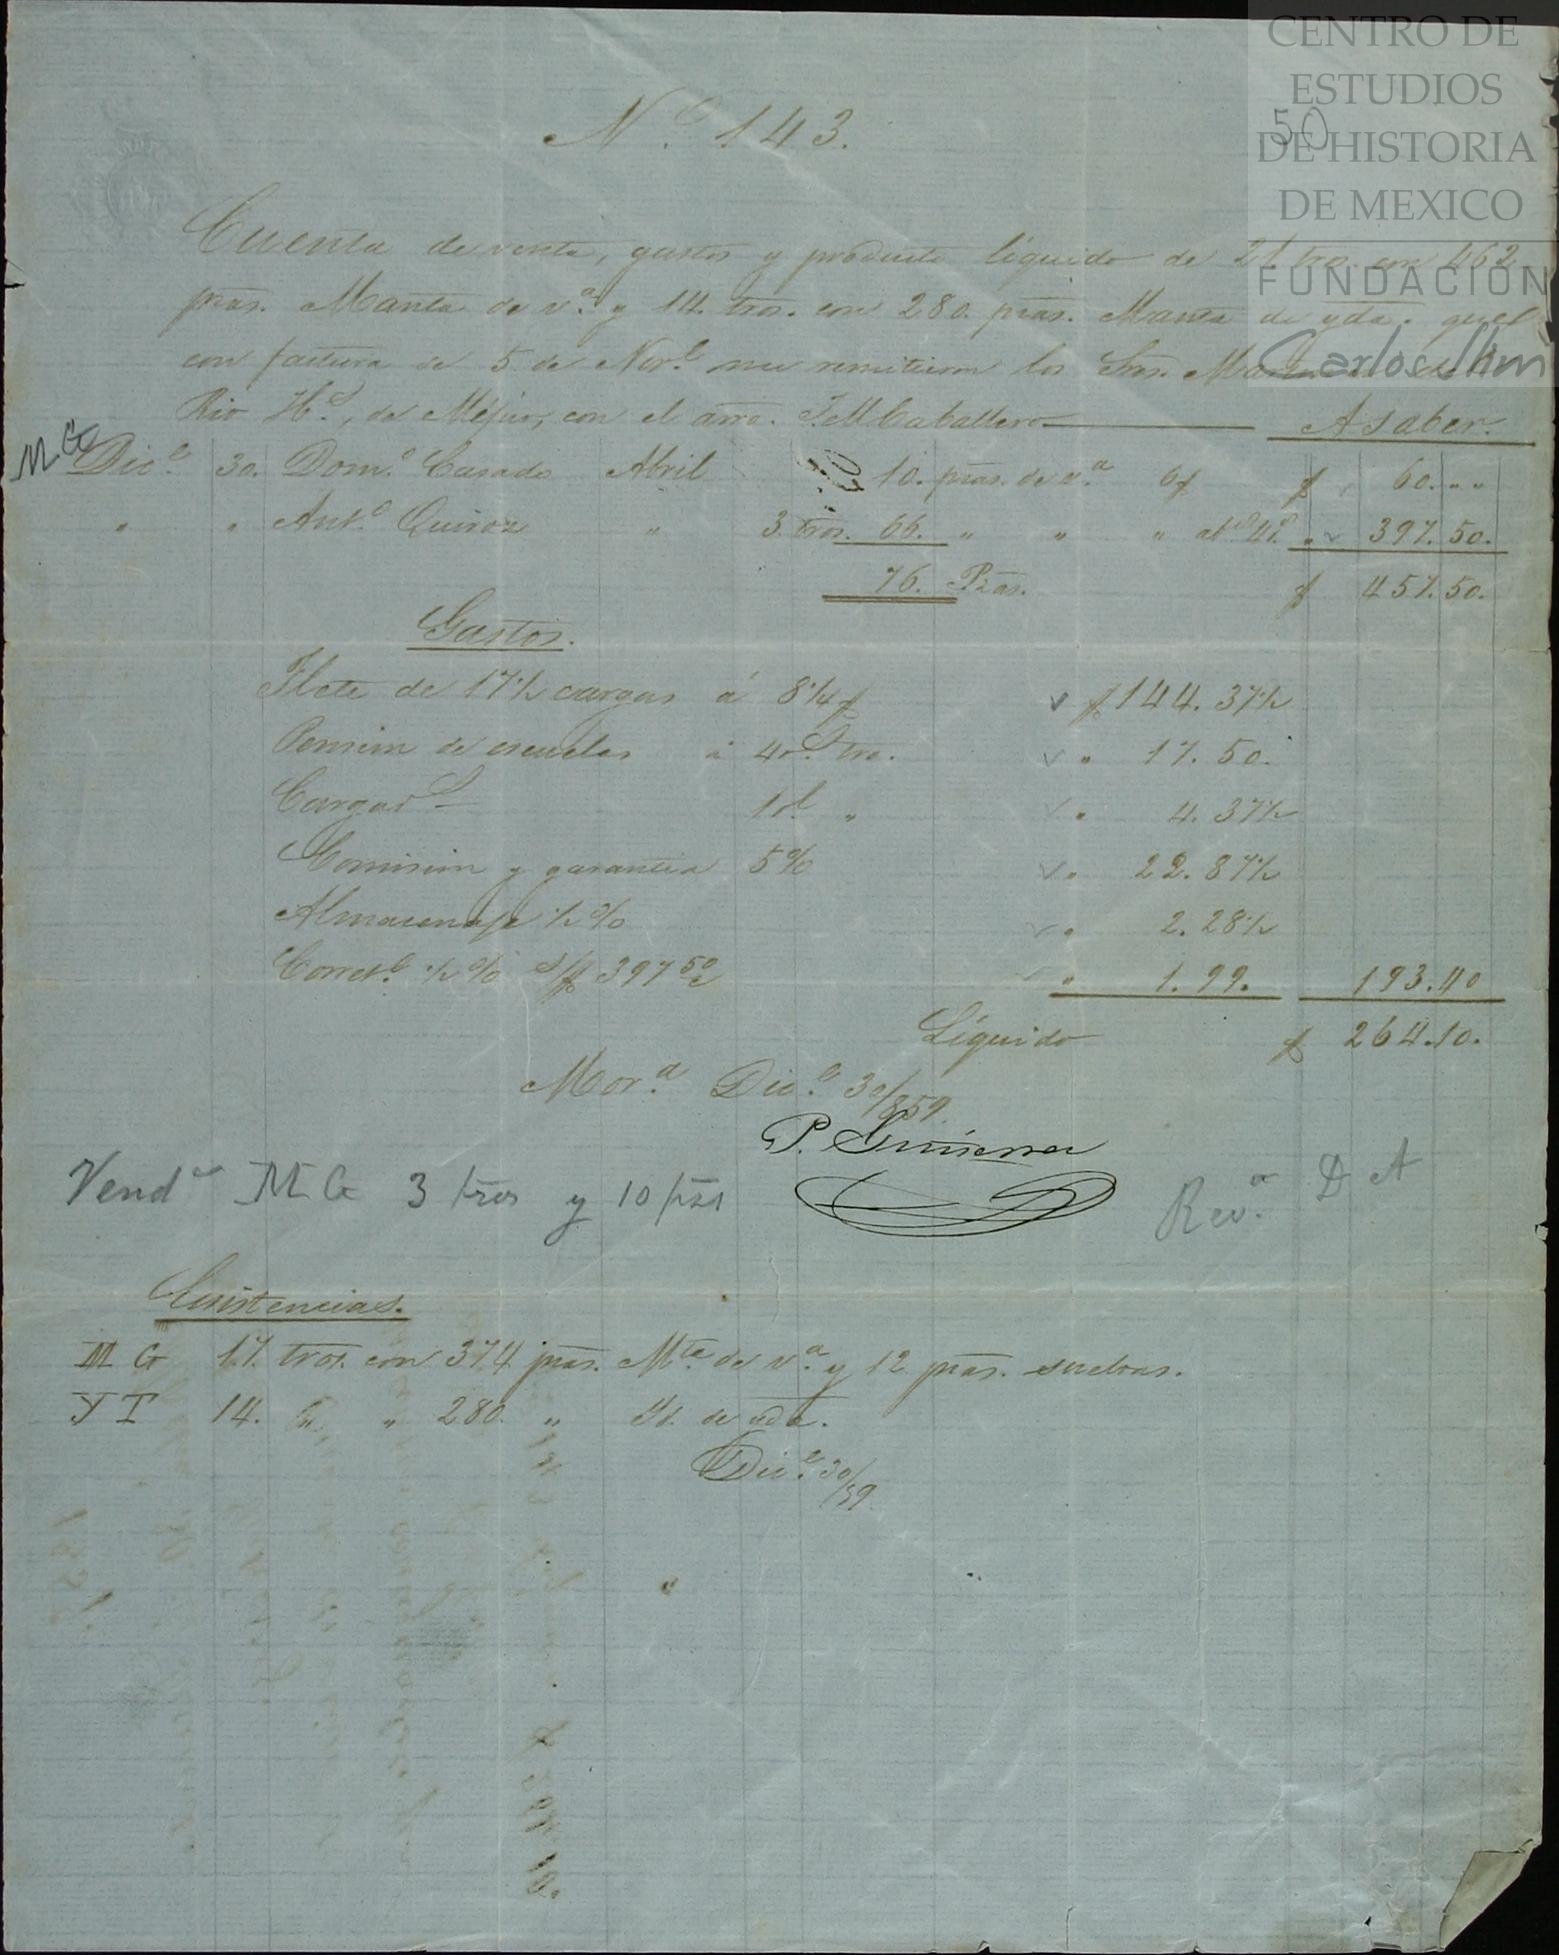 CENTRO DE
ESTUDIOS
DE HISTORIA
DE MEXICO
FUNDACIÓN
Carlos Slim
50
N.º 143.
Cuenta de venta, gastos y producto líquido de 21 tros. con 462
pzas. Manta de v.ª y 14. tros. con 280. pzas. Manta de yda. que
con factura de 5 de Nov.e me remitieron los Sres. Martinez del
Rio H.s, de Méjico, con el arro. J M Caballero A saber.
MG
Dic.e 30. Dom.º Casado Abril 10. pzas. de v.ª 6$ $ 60. " "
" " Ant.º Quiroz " 3. tros. 66. " " " " 397. 50.
76. Pzas. $ 457. 50.
Gastos.
Flete de 17½ cargas á 8¼ $ $ 144. 37½
Pension de escuelas á 4 r.s tro. " 17. 50.
Cargad.s 1 rl. " " 4. 37½
Comision y garantia 5 % " 22. 87½
Almacenaje ½ % " 2. 28½
Corret.e ½ % s/$ 397 50 " 1. 99. 193. 40
Líquido $ 264. 10.
Mor.ª Dic.e 30/859.
P. Gutierrez
Vend.s MG 3 tros y 10 pzas
Rev.º D A
Existencias.
MG 17. tros. con 374 pzas. Mta. de v.ª y 12 pzas. sueltas.
YT 14. " " 280. " Id. de yda.
Dic.e 30/59